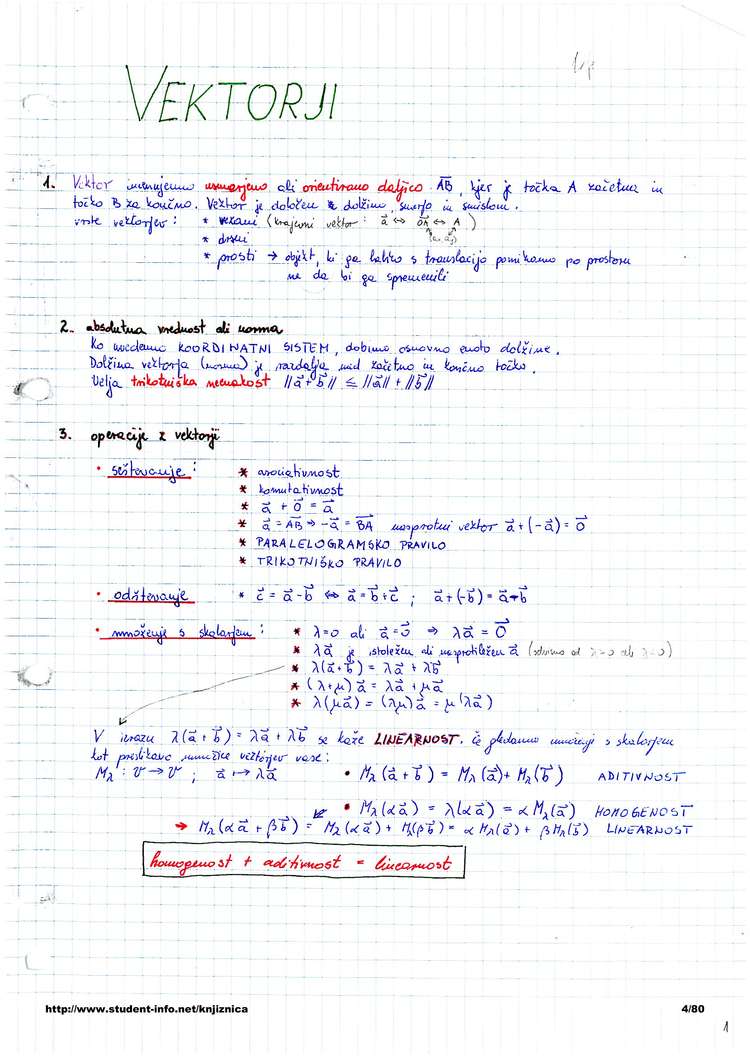 VEKTORJI
1. Vektor imenujemo usmerjeno ali orientirano daljico \overrightarrow{AB}, kjer je točka A začetna in
točko B za končno. Vektor je določen z dolžino, smerjo in smislom.
vrste vektorjev: * vezani (krajevni vektor: \vec{a} ⇔ \overrightarrow{OA} ⇔ A)
* drsni
* prosti → objekt, ki ga lahko s translacijo pomikamo po prostoru
ne da bi ga spremenili
2. absolutna vrednost ali norma
Ko uvedemo KOORDINATNI SISTEM, dobimo osnovno enoto dolžine.
Dolžina vektorja (norma) je razdalja med začetno in končno točko.
Velja trikotniška neenakost ||\vec{a} + \vec{b}|| ≤ ||\vec{a}|| + ||\vec{b}||
3. operacije z vektorji
• seštevanje: * asociativnost
* komutativnost
* \vec{a} + \vec{0} = \vec{a}
* \vec{a} = \overrightarrow{AB} ⇒ -\vec{a} = \overrightarrow{BA} nasprotni vektor \vec{a} + (-\vec{a}) = \vec{0}
* PARALELOGRAMSKO PRAVILO
* TRIKOTNIŠKO PRAVILO
• odštevanje * \vec{c} = \vec{a} - \vec{b} ⇔ \vec{a} = \vec{b} + \vec{c} ; \vec{a} + (-\vec{b}) = \vec{a} - \vec{b}
• množenje s skalarjem: * λ=0 ali \vec{a} = \vec{0} ⇒ λ\vec{a} = \vec{0}
* λ\vec{a} je istoležen ali nasprotiležen \vec{a} (odvisno od λ>0 ali λ<0)
* λ(\vec{a} + \vec{b}) = λ\vec{a} + λ\vec{b}
* (λ+μ)\vec{a} = λ\vec{a} + μ\vec{a}
* λ(μ\vec{a}) = (λμ)\vec{a} = μ(λ\vec{a})
V izrazu λ(\vec{a} + \vec{b}) = λ\vec{a} + λ\vec{b} se kaže LINEARNOST. Če gledamo množenje s skalarjem
kot preslikavo množice vektorjev vase:
M_λ : V → V ; \vec{a} ↦ λ\vec{a} • M_λ(\vec{a} + \vec{b}) = M_λ(\vec{a}) + M_λ(\vec{b}) ADITIVNOST
• M_λ(α\vec{a}) = λ(α\vec{a}) = αM_λ(\vec{a}) HOMOGENOST
→ M_λ(α\vec{a} + β\vec{b}) = M_λ(α\vec{a}) + M_λ(β\vec{b}) = αM_λ(\vec{a}) + βM_λ(\vec{b}) LINEARNOST
homogenost + aditivnost = linearnost
http://www.student-info.net/knjiznica 4/80
1